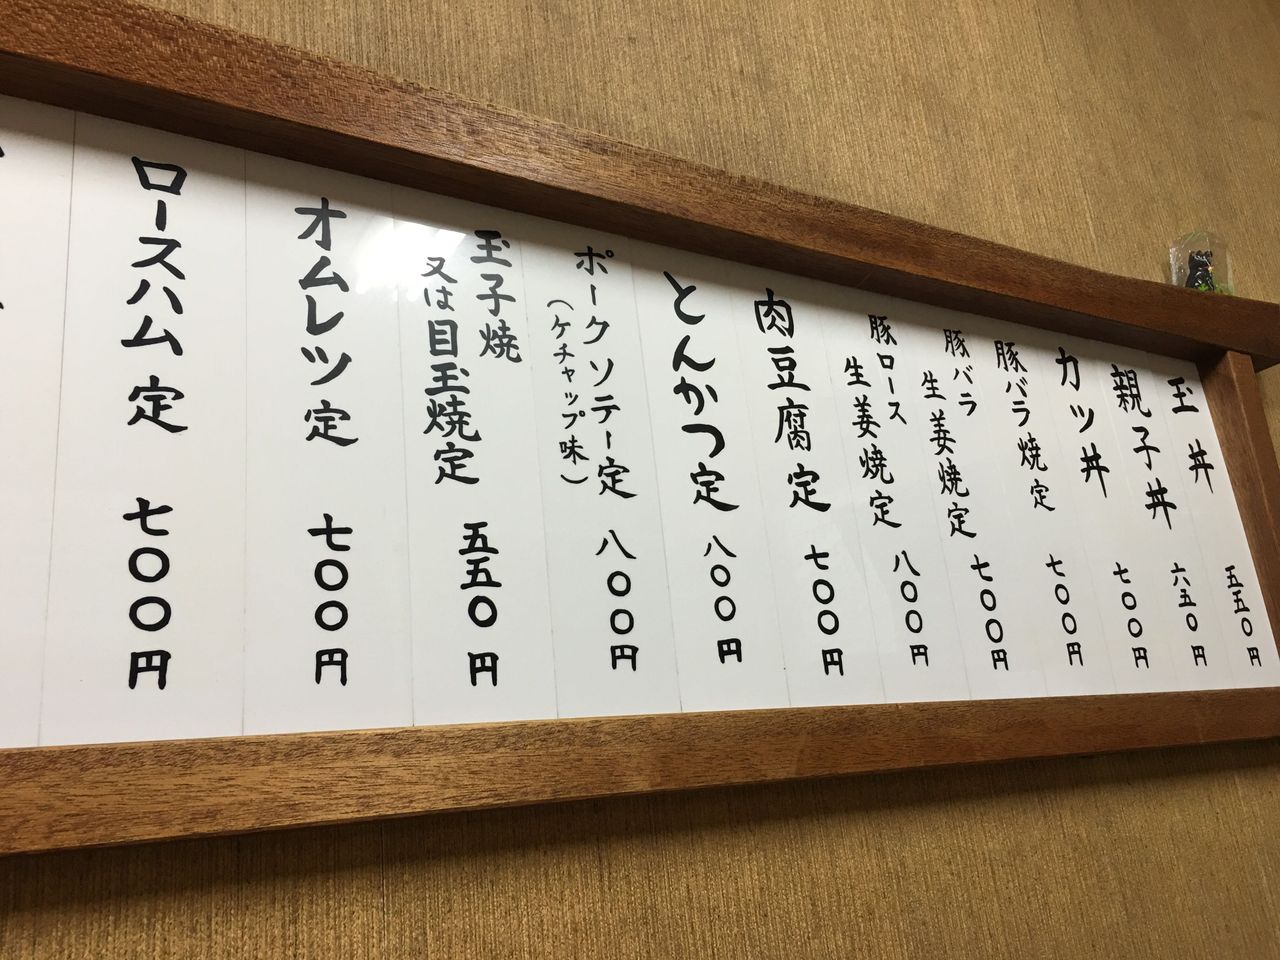 玉丼 五五〇円
親子丼 六五〇円
カツ丼 七〇〇円
豚バラ焼定 七〇〇円
豚バラ
生姜焼定 七〇〇円
豚ロース
生姜焼定 八〇〇円
肉豆腐定 七〇〇円
とんかつ定 八〇〇円
ポークソテー定 八〇〇円
（ケチャップ味）
玉子焼
又は目玉焼定 五五〇円
オムレツ定 七〇〇円
ロースハム定 七〇〇円